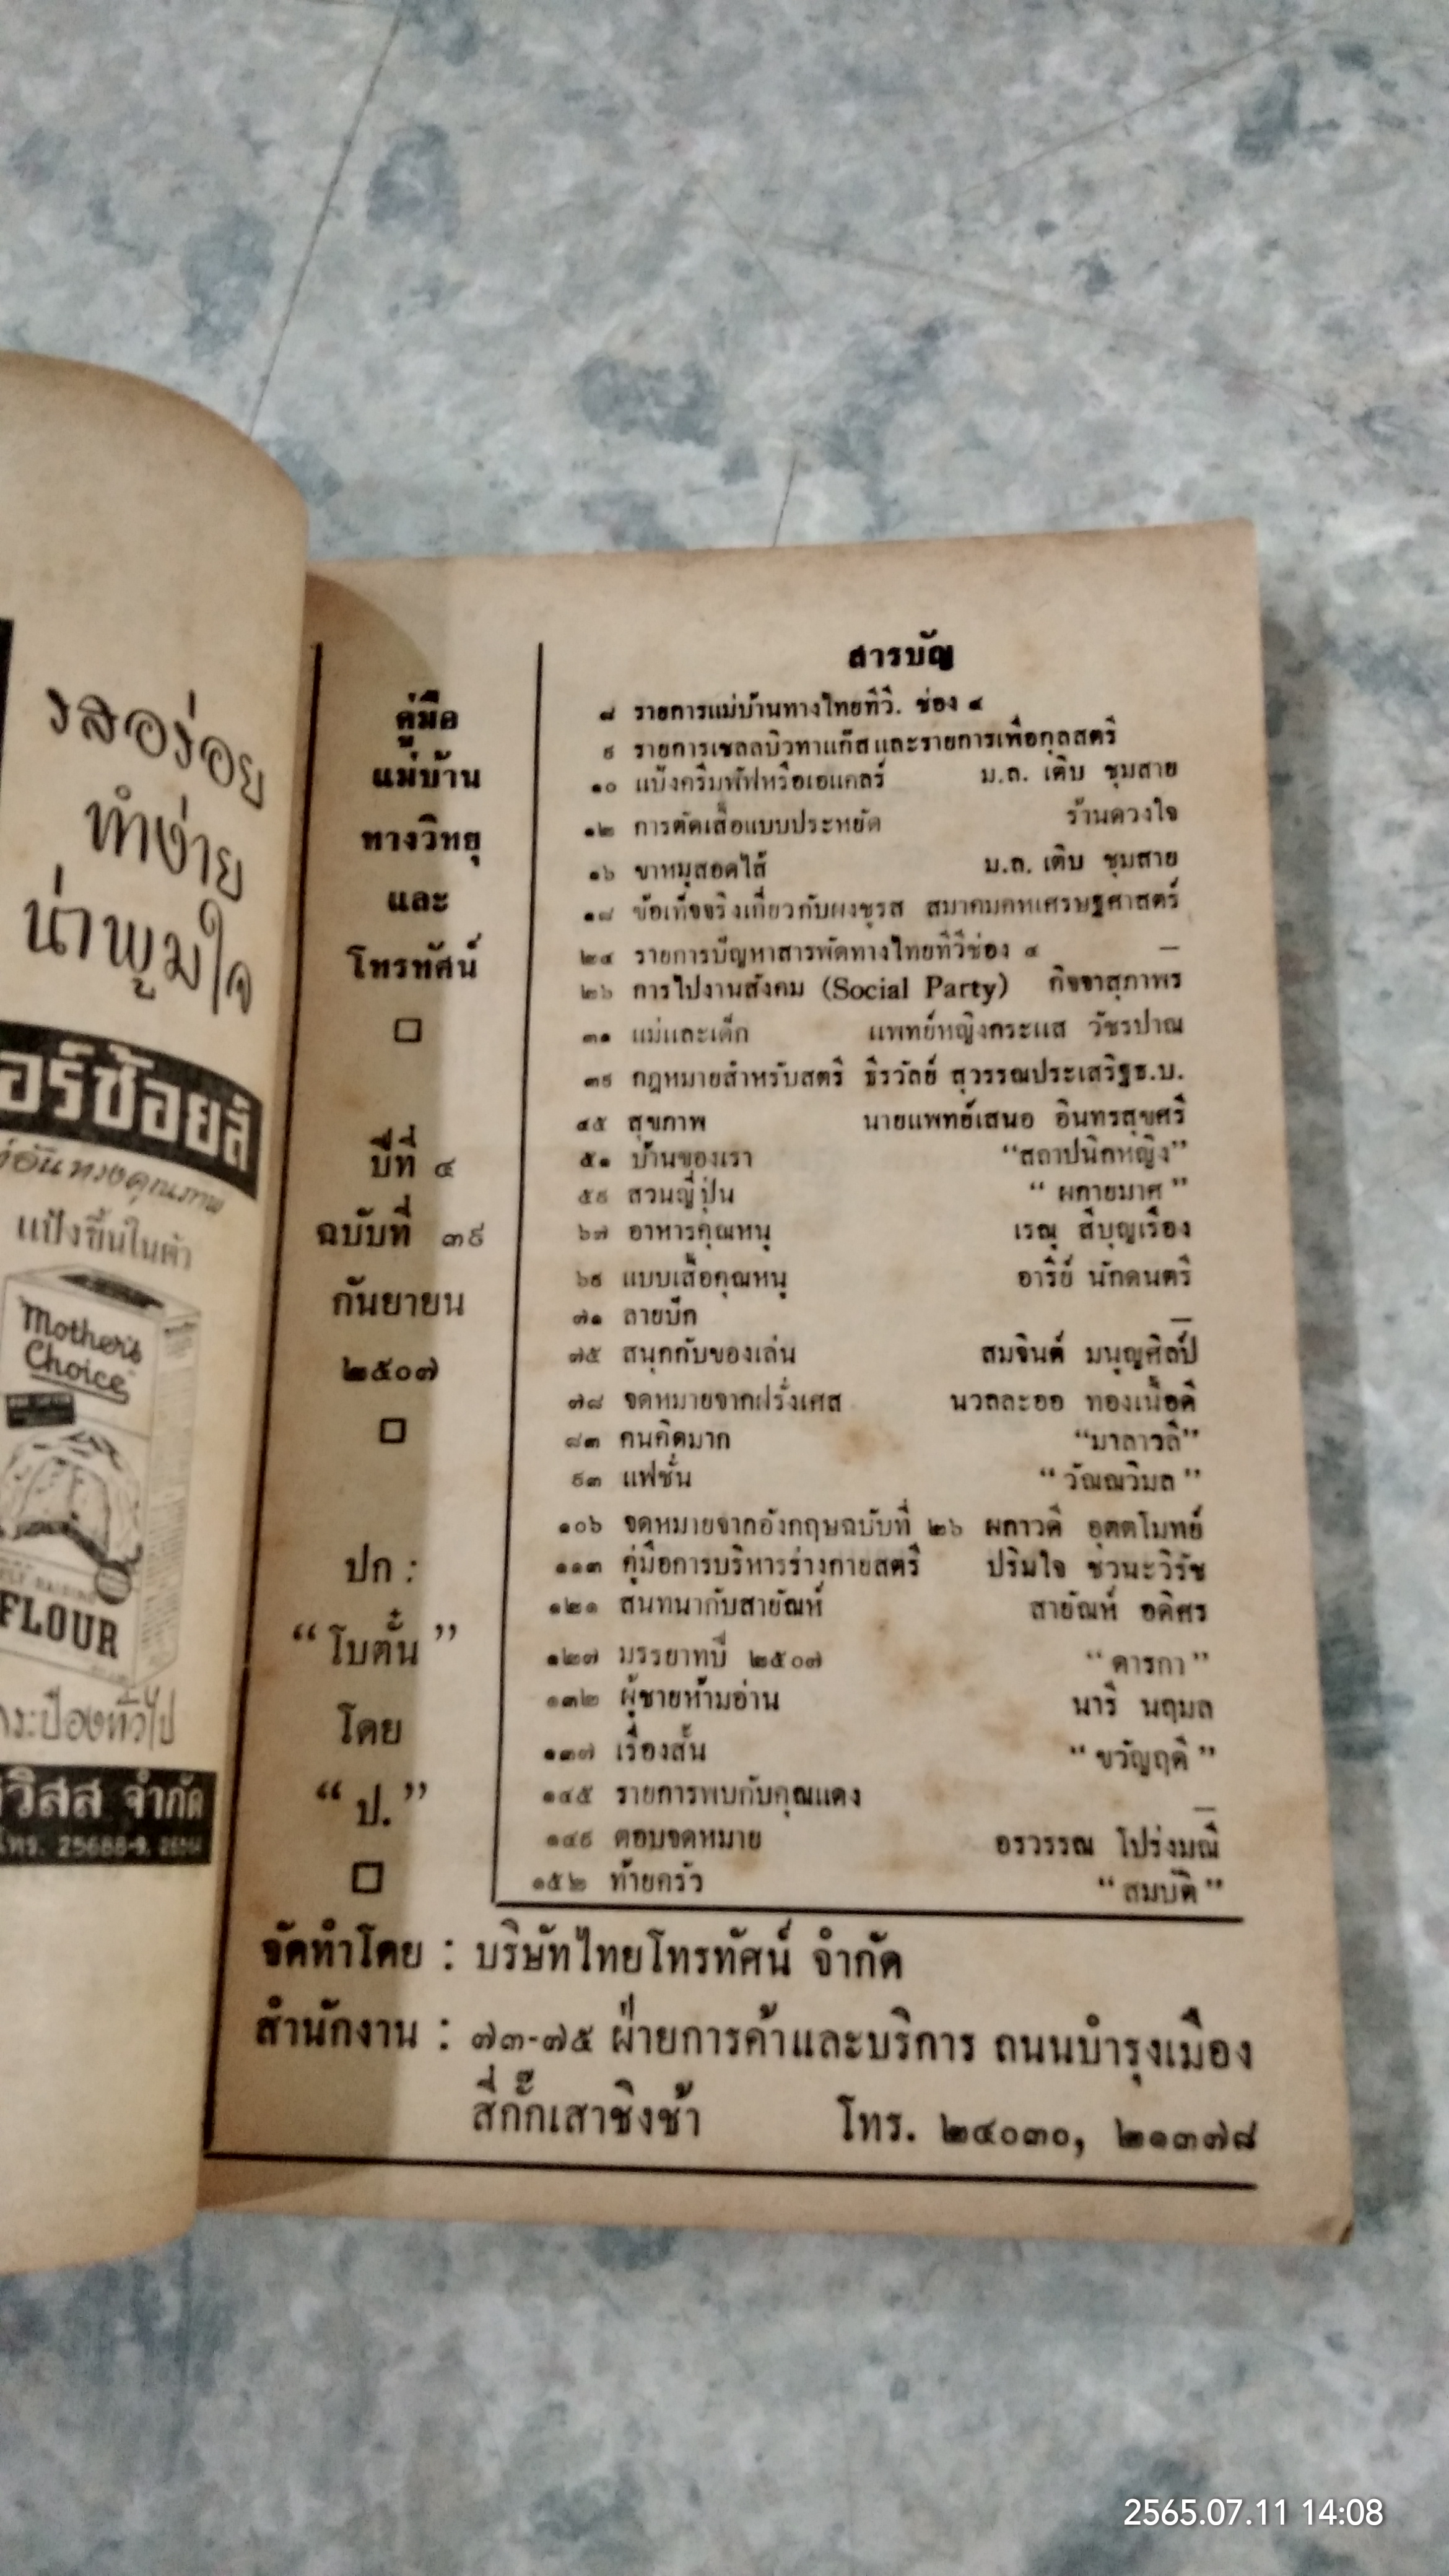 รสอร่อย
ทำง่าย
น่าภูมิใจ
อร์ช้อยส์
แป้งขึ้นในตัว
Mother's
Choice
FLOUR
วิสส จำกัด
โทร. 25688-9,
คู่มือ
แม่บ้าน
ทางวิทยุ
และ
โทรทัศน์
ปีที่ ๔
ฉบับที่ ๓๙
กันยายน
๒๕๐๗
ปก :
“ โบตั๋น ”
โดย
“ ป. ”
สารบัญ
๘ รายการแม่บ้านทางไทยทีวี. ช่อง ๔
๙ รายการเชลลบิวทาแก๊สและรายการเพื่อกุลสตรี
๑๐ แป้งครีมพัฟหรือเอแคลร์ ม.ล. เติบ ชุมสาย
๑๒ การตัดเสื้อแบบประหยัด ร้านดวงใจ
๑๖ ขาหมูสอดไส้ ม.ล. เติบ ชุมสาย
๑๘ ข้อเท็จจริงเกี่ยวกับผงชูรส สมาคมคหเศรษฐศาสตร์
๒๔ รายการปัญหาสารพัดทางไทยทีวีช่อง ๔ —
๒๖ การไปงานสังคม (Social Party) กิจจาสุภาพร
๓๑ แม่และเด็ก แพทย์หญิงกระแส วัชรปาณ
๓๙ กฎหมายสำหรับสตรี ธีรวัลย์ สุวรรณประเสริฐธ.บ.
๔๕ สุขภาพ นายแพทย์เสนอ อินทรสุขศรี
๕๑ บ้านของเรา “สถาปนิกหญิง”
๕๙ สวนญี่ปุ่น “ ผกายมาศ ”
๖๗ อาหารคุณหนู เรณู สีบุญเรือง
๖๙ แบบเสื้อคุณหนู อารีย์ นักดนตรี
๗๑ ลายปัก —
๗๕ สนุกกับของเล่น สมจินต์ มนูญศิลป์
๗๘ จดหมายจากฝรั่งเศส นวลละออ ทองเนื้อดี
๘๓ คนคิดมาก “มาลาวลี”
๙๓ แฟชั่น “ วัณณวิมล ”
๑๐๖ จดหมายจากอังกฤษฉบับที่ ๒๖ ผกาวดี อุตตโมทย์
๑๑๓ คู่มือการบริหารร่างกายสตรี ปริมใจ ชวนะวิรัช
๑๒๑ สนทนากับสายัณห์ สายัณห์ อดิศร
๑๒๗ มรรยาทปี ๒๕๐๗ “ ดารกา ”
๑๓๒ ผู้ชายห้ามอ่าน นารี นฤมล
๑๓๗ เรื่องสั้น “ ขวัญฤดี ”
๑๔๕ รายการพบกับคุณแดง —
๑๔๙ ตอบจดหมาย อรวรรณ โปร่งมณี
๑๕๒ ท้ายครัว “ สมบัติ ”
จัดทำโดย : บริษัทไทยโทรทัศน์ จำกัด
สำนักงาน : ๗๓-๗๕ ฝ่ายการค้าและบริการ ถนนบำรุงเมือง
สี่กั๊กเสาชิงช้า โทร. ๒๔๐๓๐, ๒๑๓๗๘
2565.07.11 14:08